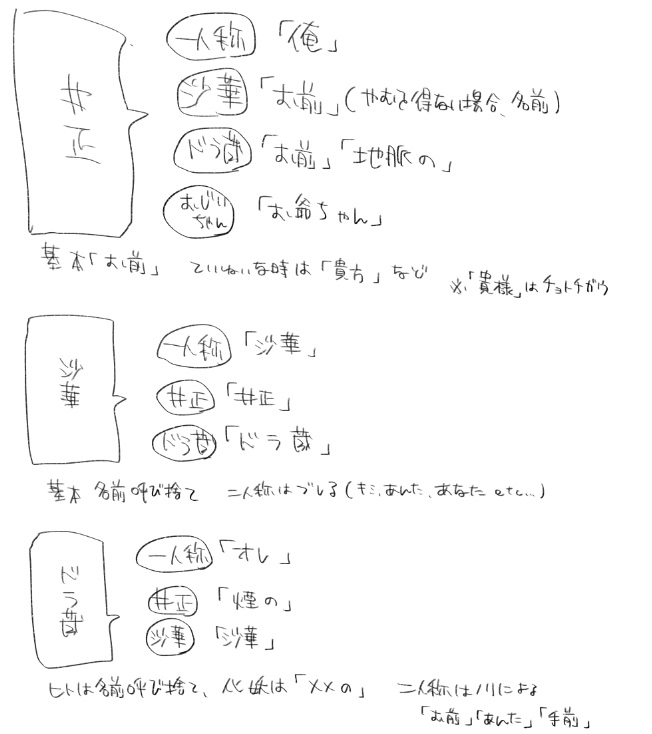 井正
一人称 「俺」
沙華 「お前」(やむを得ない場合、名前)
ドラ蔵 「お前」「地脈の」
おじいちゃん 「お爺ちゃん」
基本「お前」 ていねいな時は「貴方」など ※「貴様」はチョトチガウ
沙華
一人称 「沙華」
井正 「井正」
ドラ蔵 「ドラ蔵」
基本 名前呼び捨て 二人称はブレる(キミ、あんた、あなた etc...)
ドラ蔵
一人称 「オレ」
井正 「煙の」
沙華 「沙華」
ヒトは名前呼び捨て、化妖は「××の」 二人称はノリによる
「お前」「あんた」「手前」